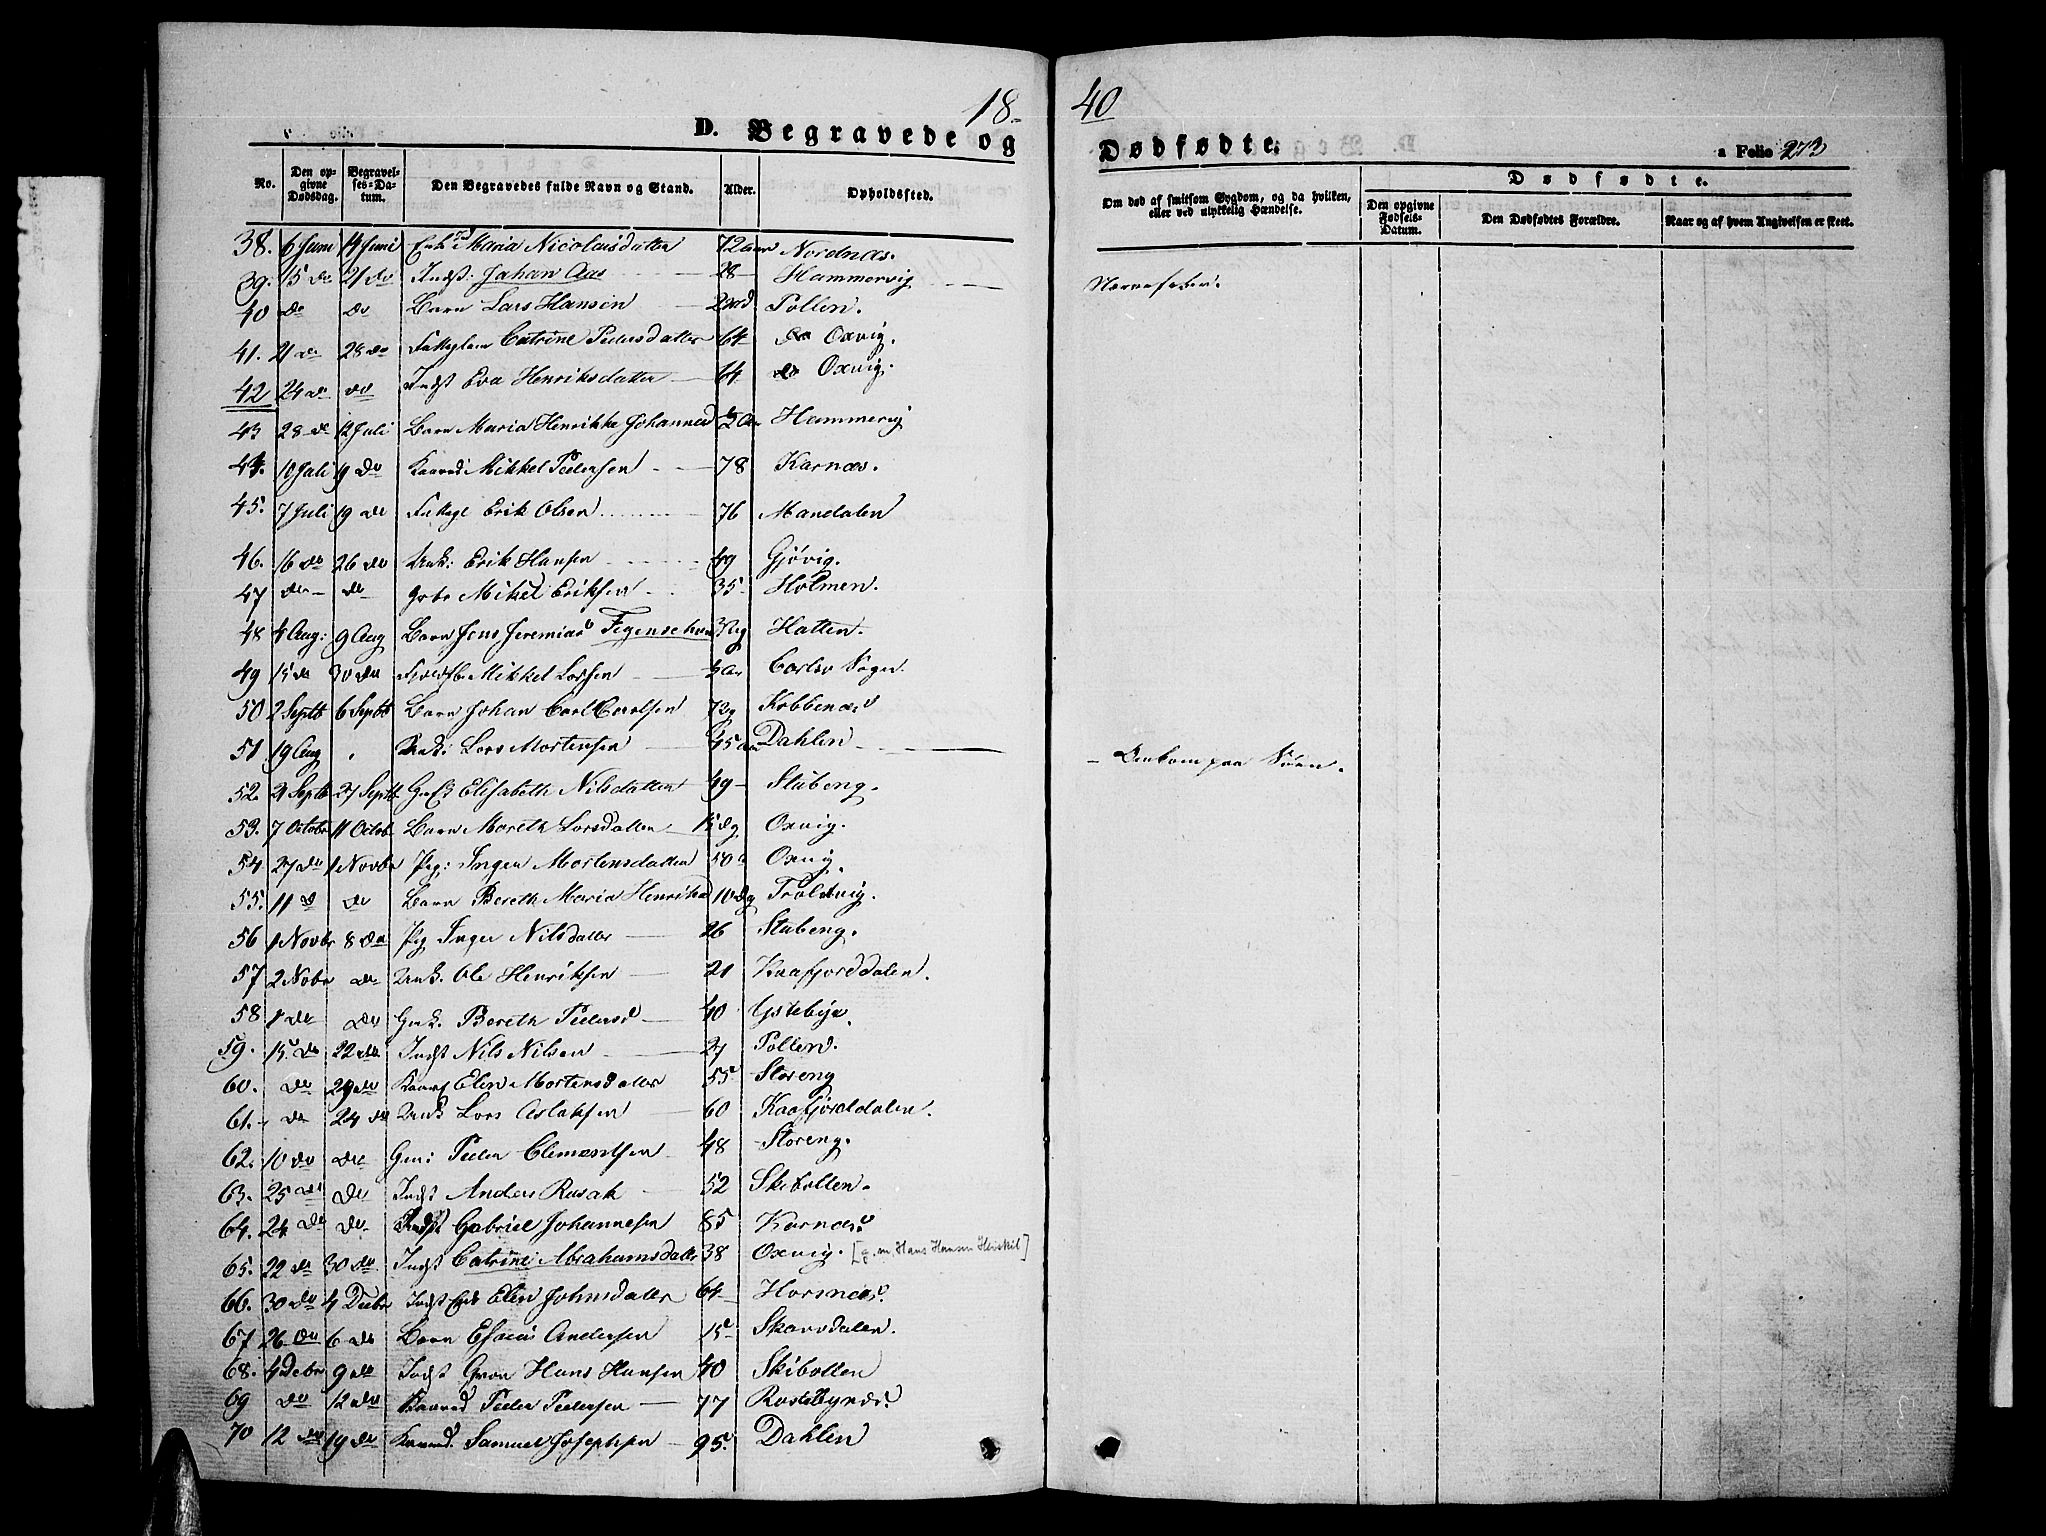 18-40
D. Begravede og Dødfødte.
a Folio 273
No. Den opgivne Dødsdag. Begravelses-Datum. Den Begravedes fulde Navn og Stand. Alder. Opholdssted. Om død af smitsom Sygdom, og da hvilken, eller ved ulykkelig Hændelse.
Dødfødte.
Den opgivne Fødsels-Datum. Den Dødfødtes Forældre. Naar og af hvem Angivelsen er skeet.
38. 6 Juni 14 Juni Enke Maria Nicolaisdatter 72 aar Nordnæs.
39. 15 do 21 do Indst: Johan Aas 28 Hammervig Nervefeber.
40 do do Barn Lars Hansen Pollen.
41. 21 do 28 do Fattiglem Catrine Pedersdatter 64 Oxvig.
42 24 do do Indst Eva Henriksdatter 64 Oxvig.
43 28 do 12 Juli Barn Maria Henrikke Johannesd Hammervig
44. 10 Juli 19 do Kaared Mikkel Pedersen 78 Karnæs.
45. 7 Juli 19 do Fattigl Erik Olsen 76 Mandalen
46. 16 do 26 do Unk: Erik Hansen 49 Gjøvig.
47 do do Mikkel Eriksen 35 Holmen.
48 4 Aug: 9 Aug Barn Jens Jeremias Figenschau Hatten.
49 15 do 30 do Mikkel Larsen Carlsø Sogn.
50 2 Septb 6 Septb Barn Johan Carl Carlsen Kobbenæs
51 19 Aug Lars Mortensen 45 Dahlen Omkom paa Søen.
52. 21 Septb 27 Septb Elisabeth Nilsdatter 49 Stubeng.
53. 7 Octobr 11 Octob Barn Mareth Larsdatter 15 dg Oxvig.
54. 27 do 1 Novbr Pige: Inger Mortensdatter 50 Oxvig
55. 11 do do Barn Bereth Maria Henriksd 10 dg Troldvig.
56 1 Novbr 8 do Pig Inger Nilsdatter 26 Stubeng.
57 2 Nobr do Unk. Ole Henriksen 21 Kaafjorddalen.
58 1 do do Bereth Pedersd 40 Ystebye
59. 15 do 22 do Indst Nils Nilsen 27 Pollen.
60. do 29 do Elen Mortensdatter 55 Storeng
61. do 24 do Unk Lars Aslaksen 60 Kaafjorddalen.
62. 10 do do Peder Clementsen 48 Storeng.
63. 25 do do Indst Anders Rasak 52 Skibotten.
64. 24 do do Indst Gabriel Johannesen 85 Karnæs
65. 22 do 30 do Indst Catrine Abrahamsdatter 38 Oxvig. [g.m. Hans Hansen Heiskil]
66. 30 do 4 Decbr Indst Enk Elen Johnsdatter 64 Horsnæs.
67 26 do 6 do Barn Esaias Andersen 15 Skarsdalen.
68. 4 Debr 9 do Indst Hans Hansen 40 Skibotten
69 do 12 do Kaared Peder Pedersen 77 Rastebynæs
70 12 do 19 do Kaared. Samuel Josephsen 95. Dahlen